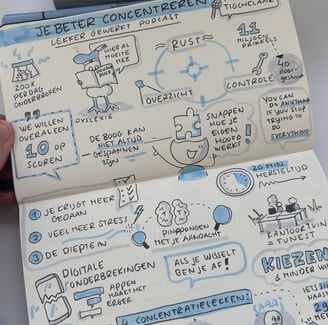 JE BETER CONCENTREREN
TIGCHELAAR
LEKKER GEWERKT PODCAST
11
PRIKKELS
HIER AL
MOEITE
MEE
RUST
200X
PER DAG
ONDERBROKEN
CONTROLE
40
OVERZICHT
DYSLEXIE
WE WILLEN
OVERAL EEN
10 OP
SCOREN
DE BOOG KAN
NIET ALTIJD
GESPANNEN
ZIJN
SNAPPEN
HOE JE
EIGEN
HOOFD
WERKT!
YOU CAN
DO ANYTHING
IF YOU STOP
TRYING TO
DO
EVERYTHING
20 MIN.
HERSTELTIJD
1 JE KRIJGT MEER
GEDAAN
2 VEEL MEER STRESS!
3 DE DIEPTE IN
PINGPONGEN
MET JE AANDACHT
KANTOORTUIN
= TUNEST
DIGITALE
ONDERBREKINGEN
APPEN
MAAKT HET
ERGER
ALS JE WISSELT
BEN JE AF!
KIEZEN
& MINDER
4 CONCENTRATIELEKKEN:
SAAAI
IETS